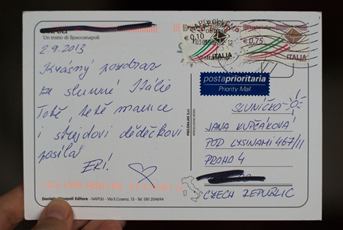 Un tratto di Spaccanapoli
2.9.2013
Krásný pozdrav
ze slunné Itálie
Tobě, také mamce
i strejdovi dědečkovi
posílá
ERI!
€0,10
ITALIA
€0,75
ITALIA
postaprioritaria
Priority Mail
SLUNÍČKO
JANA
POD LYSINAMI 467/11
PRAHA 4
CZECH REPUBLIC